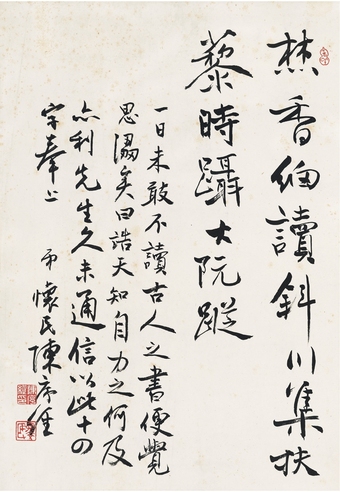 焚香細讀斜川集扶
藜時躡大阮蹤
一日未敢不讀古人之書便覺
思溺矣曰誥天知自力之何及
亦利先生久未通信以此十四
字奉上
弟懷民陳序經